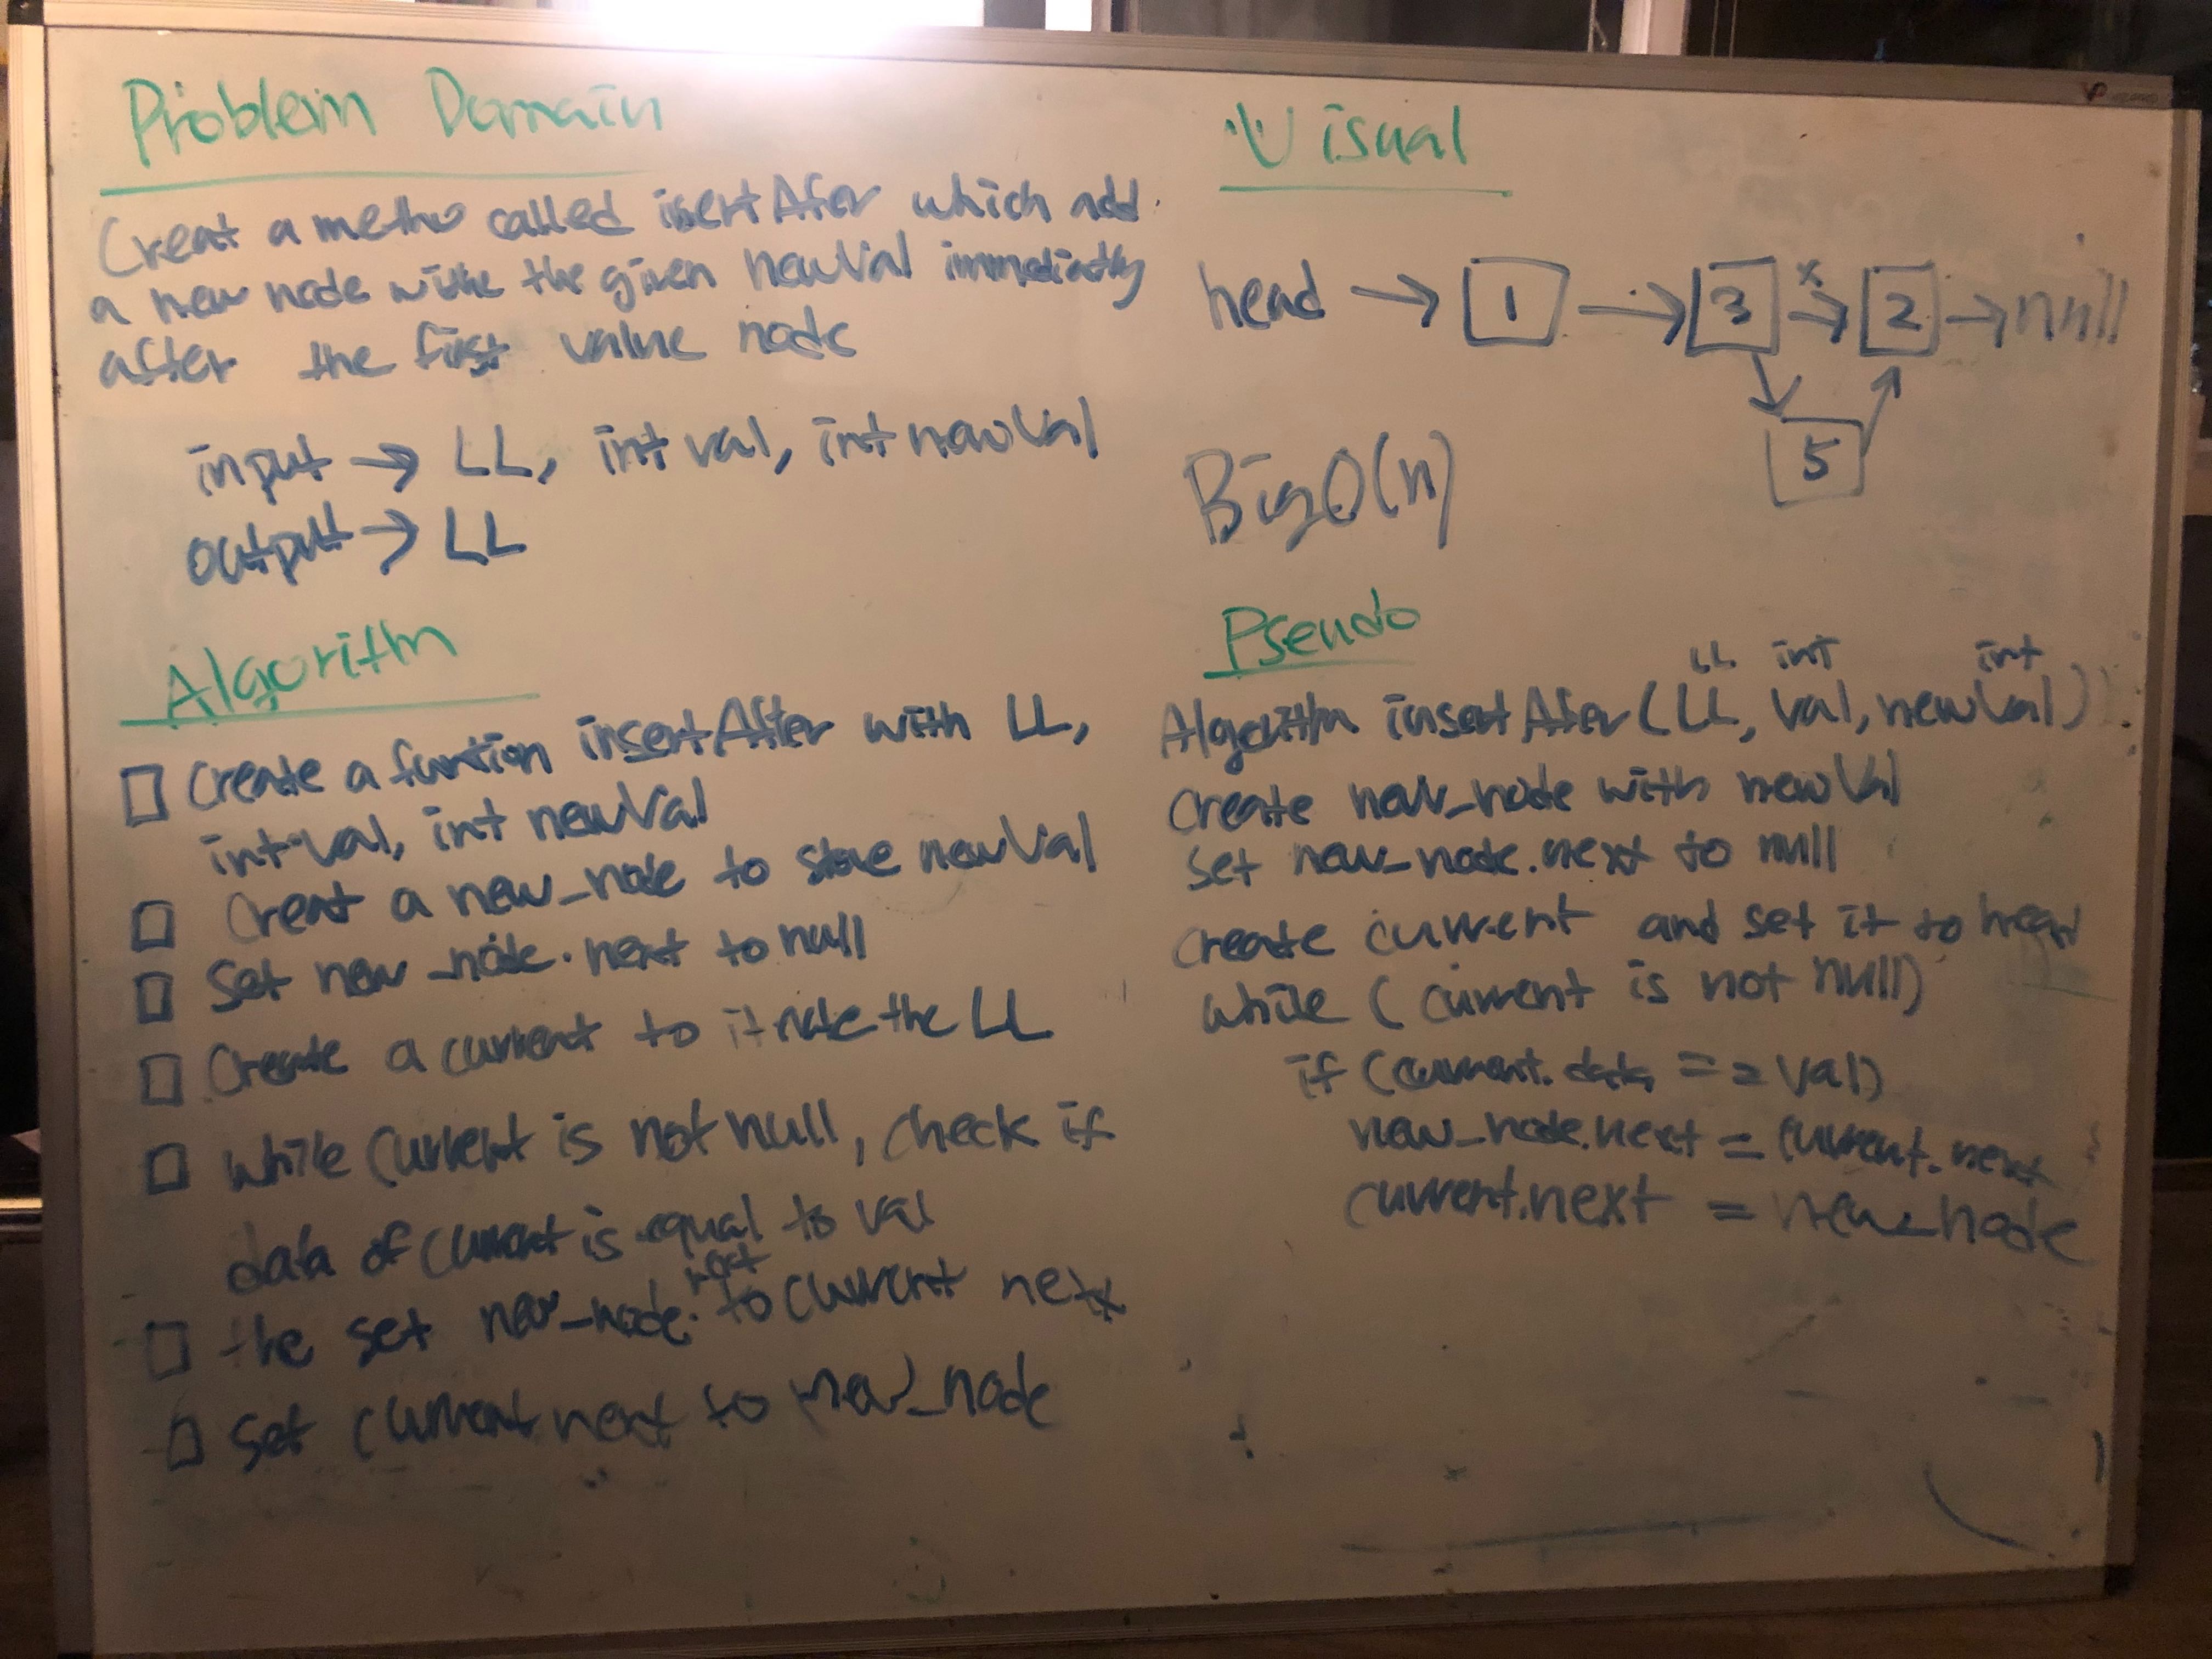 Problem Domain
Creat a metho called isertAfer which add
a new node withe the given newVal immediatly
after the first value node
input → LL, int val, int newVal
output → LL
Algorithm
Create a funtion insertAfter with LL,
int val, int newVal
Creat a new_node to store newVal
Set new_node.next to null
Create a current to itrate the LL
while current is not null, check if
data of current is equal to val
the set new_node.next to current next
Set current next to new_node
Visual
head → 1 → 3 x→ 2 → null
5
BigO(n)
Pseudo
LL int int
Algorithm insertAfer(LL, val, newVal)
Create new_node with newVal
set new_node.next to null
Create current and set it to head
while (current is not null)
if (current.data == val)
new_node.next = current.next
current.next = new_node